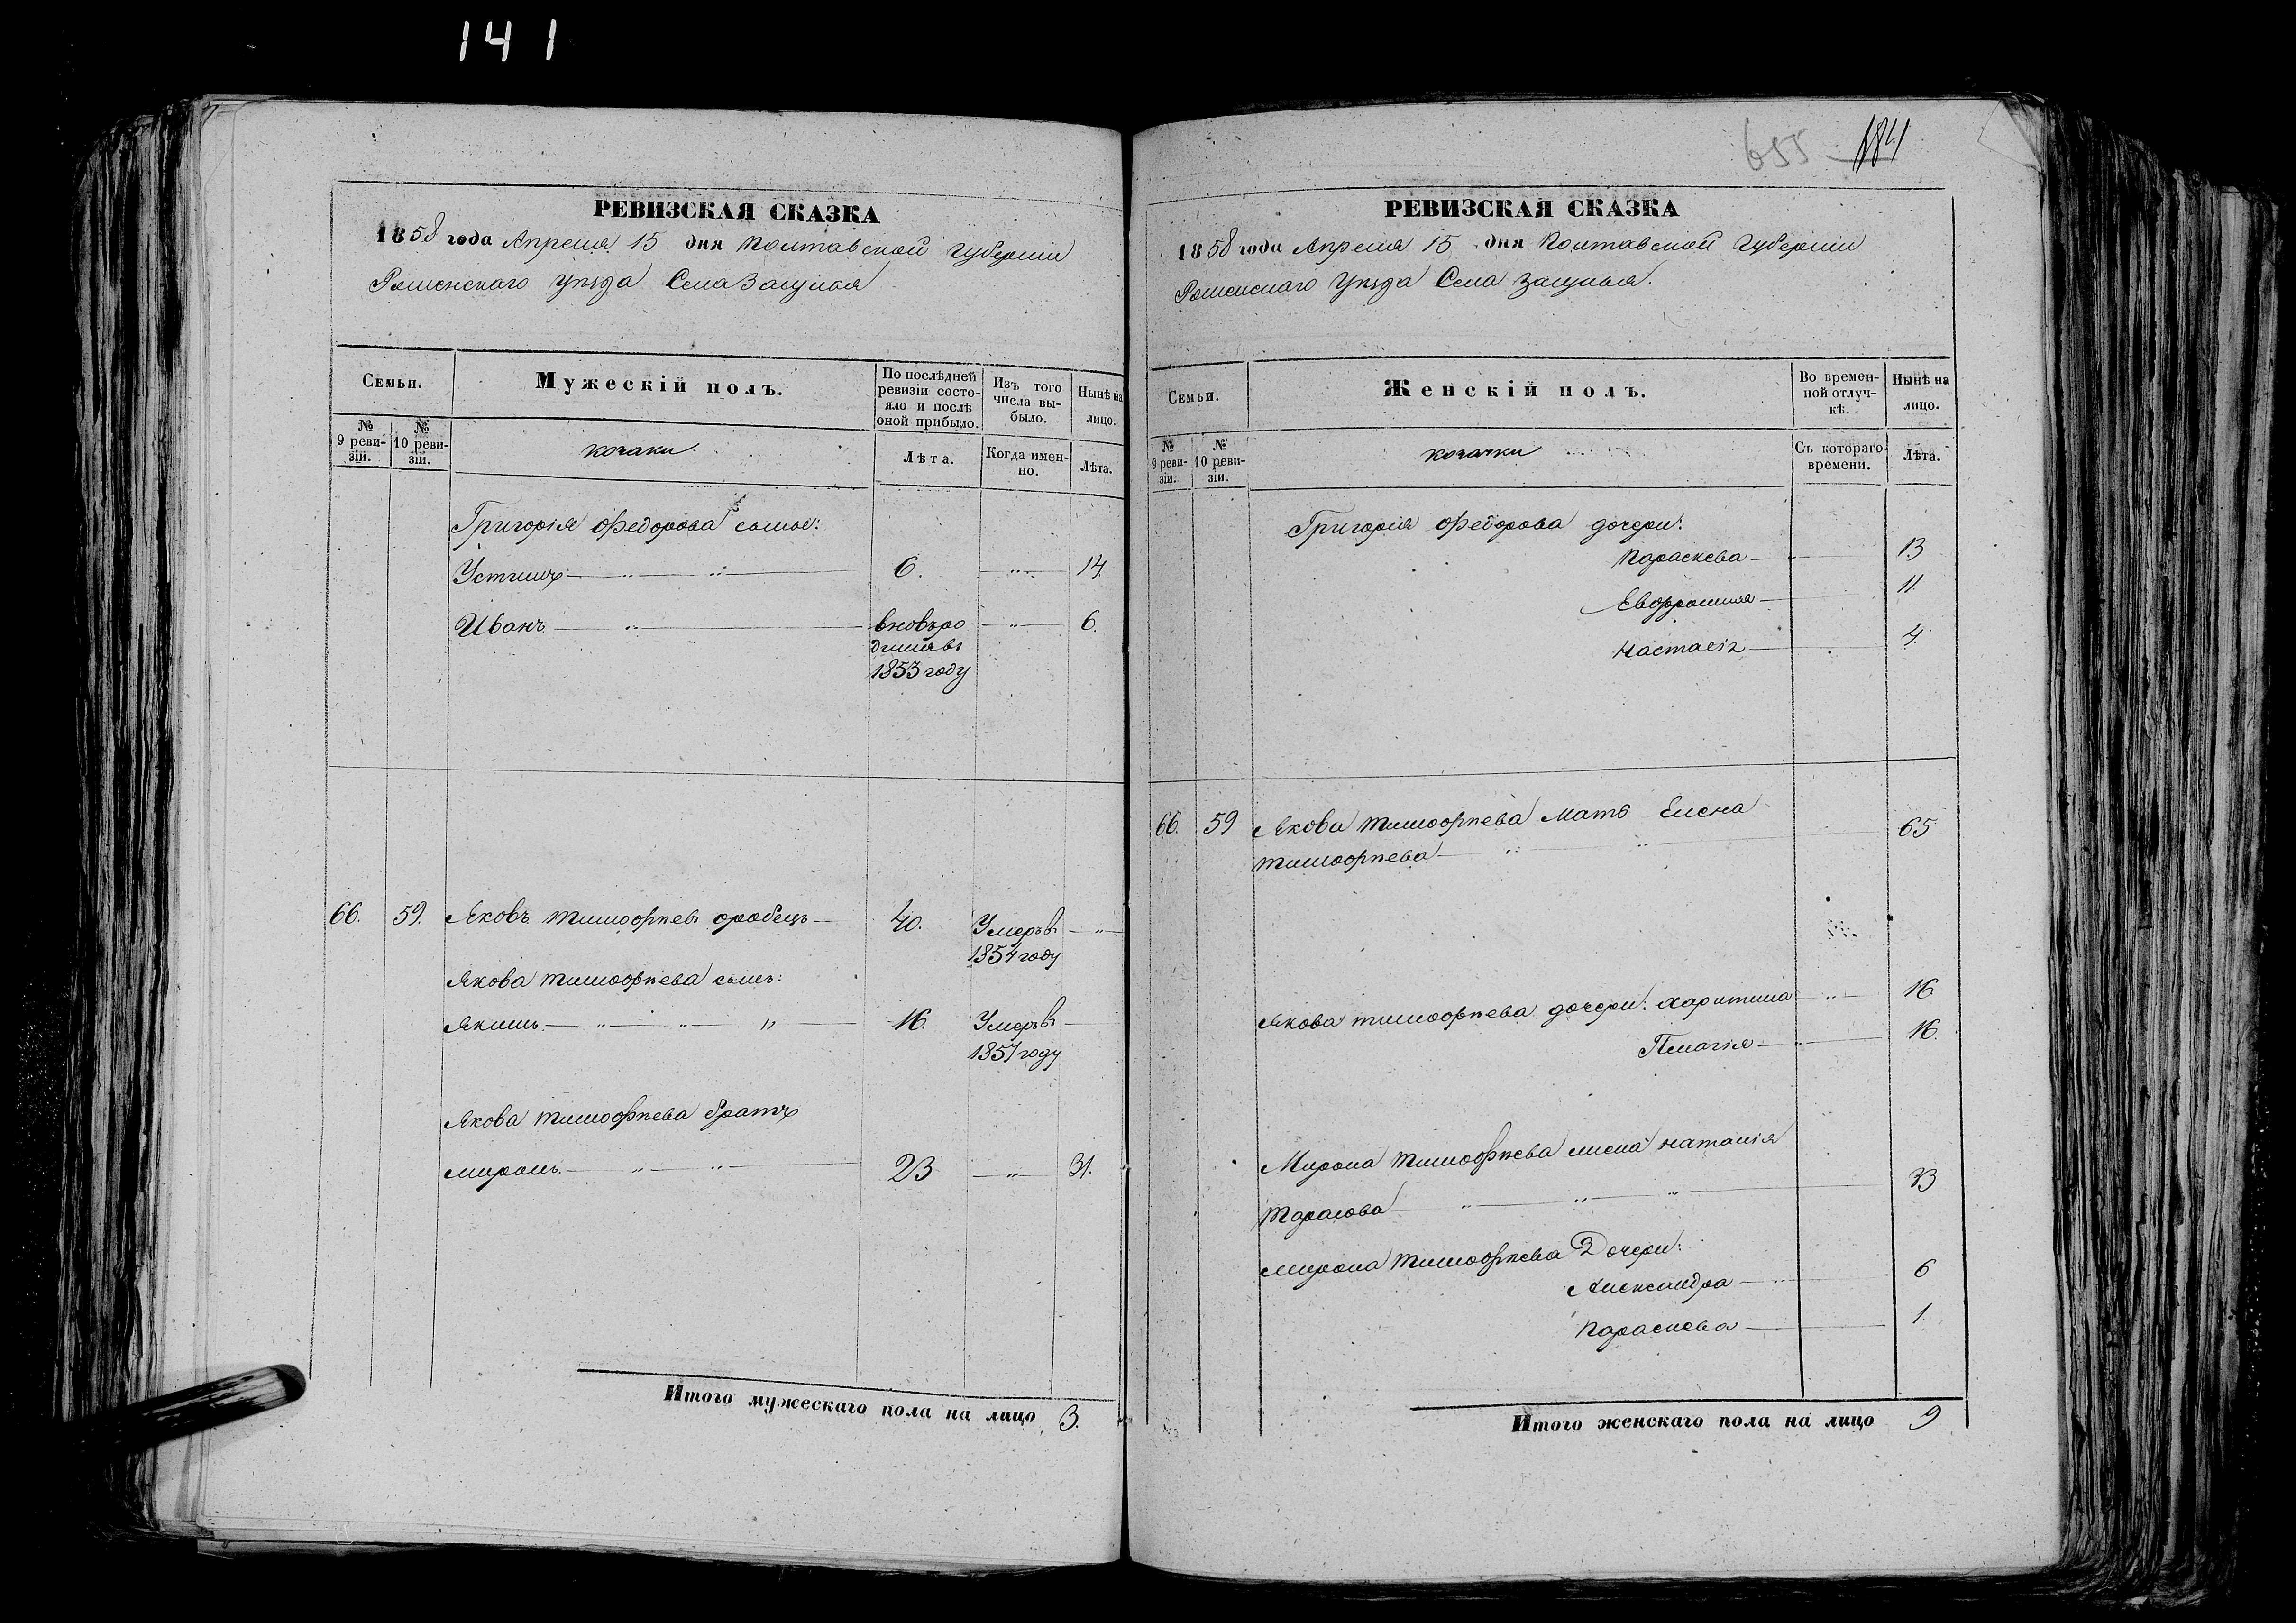 141
РЕВИЗСКАЯ СКАЗКА
1858 года Апреля 15 дня Полтавской Губерніи
Роменскаго Уѣзда Села
Семьи.
Мужескій полъ.
По послѣдней ревизіи состояло и послѣ оной прибыло.
Изъ того числа выбыло.
Нынѣ на лицо.
№ 9 ревизіи.
№ 10 ревизіи.
козаки
Лѣта.
Когда именно.
Лѣта.
Григорія Федорова сынья:
Устинъ 6. 14.
Иванъ вновь ро 6.
дился въ
1853 году
66. 59. Яковъ Тимофѣевъ 40. Умеръ въ
1854 году
Якова Тимофѣева сынъ:
Якимъ 16. Умеръ въ
1857 году
Якова Тимофѣева братъ
Миронъ 23 31.
Итого мужескаго пола на лицо 3.
655 184
РЕВИЗСКАЯ СКАЗКА
1858 года Апреля 15 дня Полтавской Губерніи
Роменскаго Уѣзда Села
Семьи.
Женскій полъ.
Во временной отлучкѣ.
Нынѣ на лицо.
№ 9 ревизіи.
№ 10 ревизіи.
козачки
Съ котораго времени.
Лѣта.
Григорія Федорова дочери:
Параскева 13
Евфросинія 11.
Настасія 4.
66. 59 Якова Тимофѣева Мать Елена
Тимофѣева 65
Якова Тимофѣева дочери: Харитина 16
Пелагія 16.
Мирона Тимофѣева жена Наталія
Тарасова 33
Мирона Тимофѣева Дочери:
Александра 6
Параскева 1.
Итого женскаго пола на лицо 9